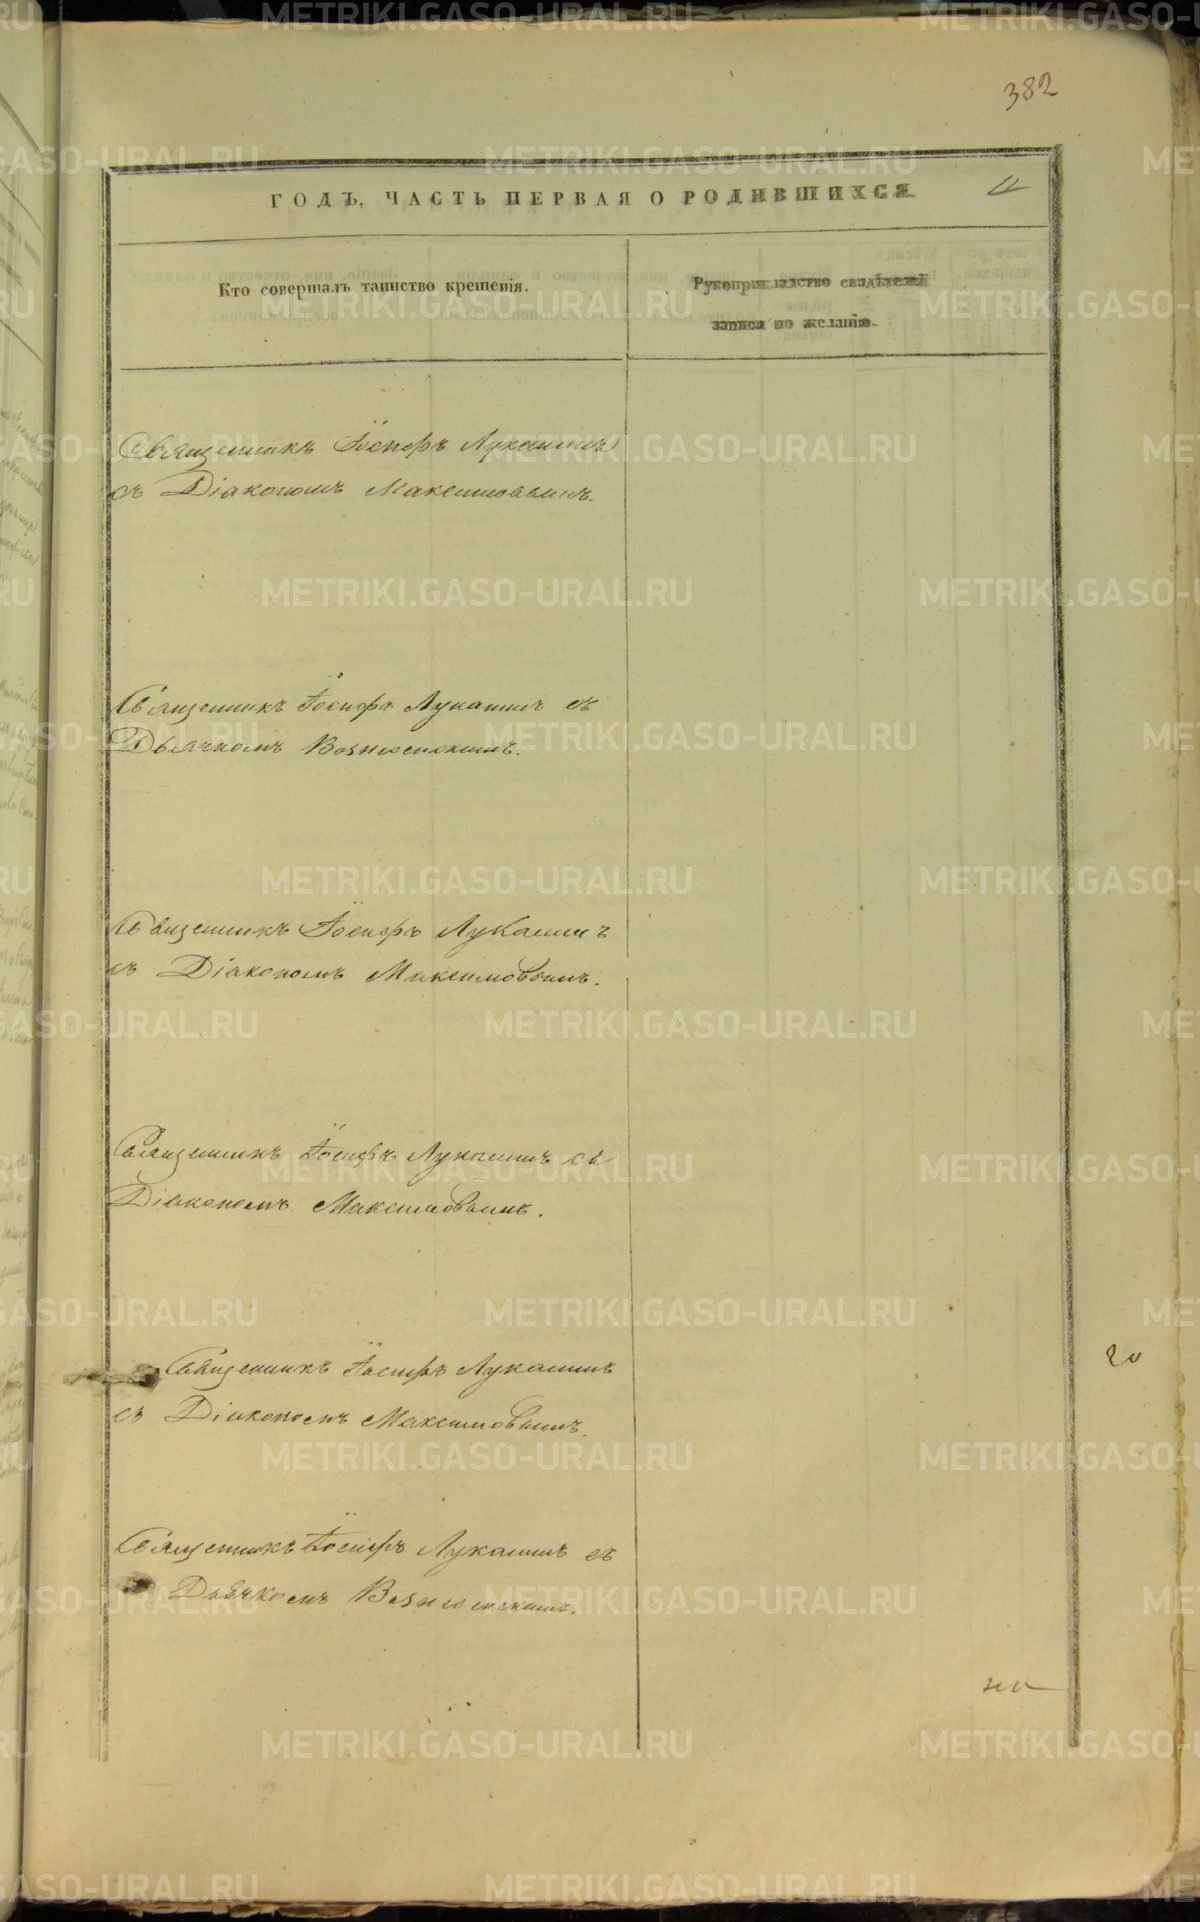 382
ГОДЪ, ЧАСТЬ ПЕРВАЯ О РОДИВШИХСЯ
11
Кто совершалъ таинство крещенія.
Рукоприкладство свидѣтелей
записи по желанію.
Священникъ Іосифъ Лукашинъ
съ Діакономъ Максимовымъ.
Священникъ Іосифъ Лукашинъ съ
Дьячкомъ Вознесенскимъ.
Священникъ Іосифъ Лукашинъ
съ Діакономъ Максимовымъ.
Священникъ Іосифъ Лукашинъ съ
Діакономъ Максимовымъ.
Священникъ Іосифъ Лукашинъ
съ Діакономъ Максимовымъ.
20
Священникъ Іосифъ Лукашинъ съ
Дьячкомъ Вознесенскимъ.
METRIKI.GASO-URAL.RU